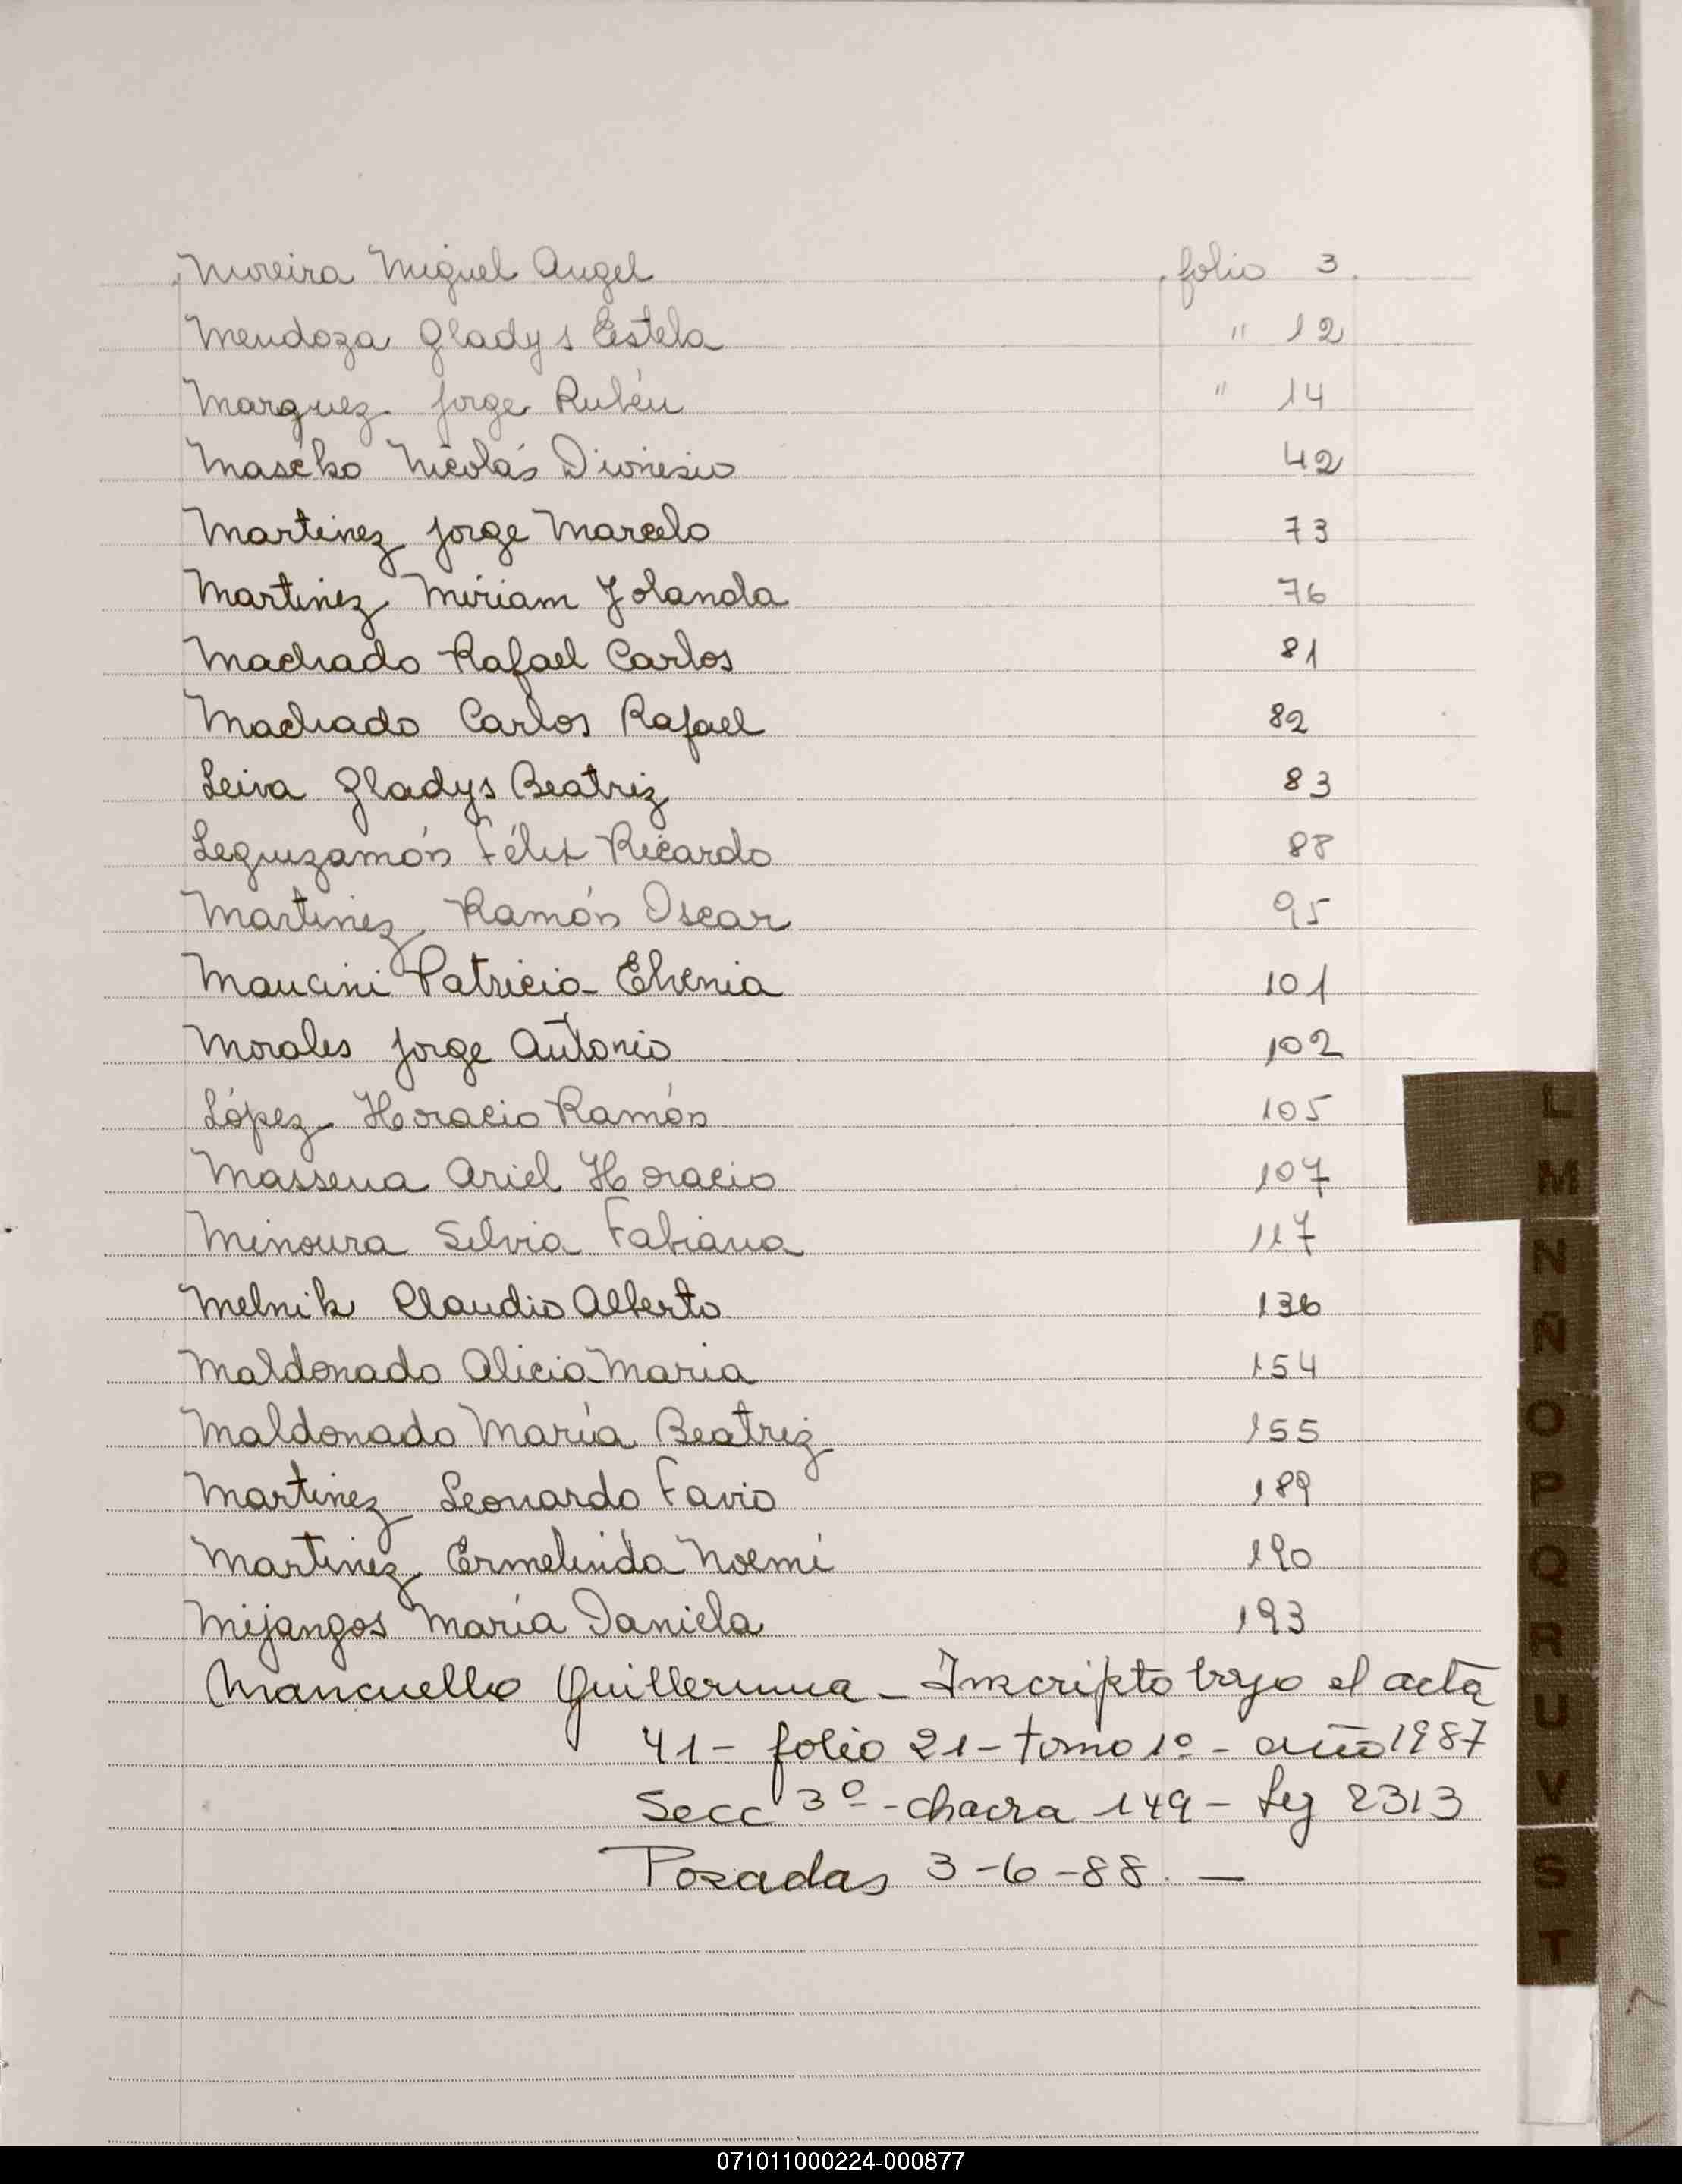 Moreira Miguel Angel folio 3
Mendoza Gladys Estela " 12
Marquez Jorge Rubén " 14
Mascko Nicolás Dionisio 42
Martinez Jorge Marcelo 73
Martinez Miriam Yolanda 76
Machado Rafael Carlos 81
Machado Carlos Rafael 82
Leiva Gladys Beatriz 83
Leguizamón Félix Ricardo 88
Martinez Ramón Oscar 95
Mancini Patricia 101
Morales Jorge Antonio 102
López Horacio Ramón 105
Massena Ariel Horacio 107
Minoura Silvia Fabiana 117
Melnik Claudio Alberto 136
Maldonado Alicia Maria 154
Maldonado María Beatriz 155
Martinez Leonardo Favio 189
Martinez Ermelinda Noemí 190
Mijangos María Daniela 193
Mancuello Guillermina - Inscripto bajo el acta
41 - folio 21 - tomo 1º - año 1987
Secc 3º - chacra 149 - Leg 2313
Posadas 3-6-88. —
L
M
N
Ñ
O
P
Q
R
U
V
S
T
071011000224-000877